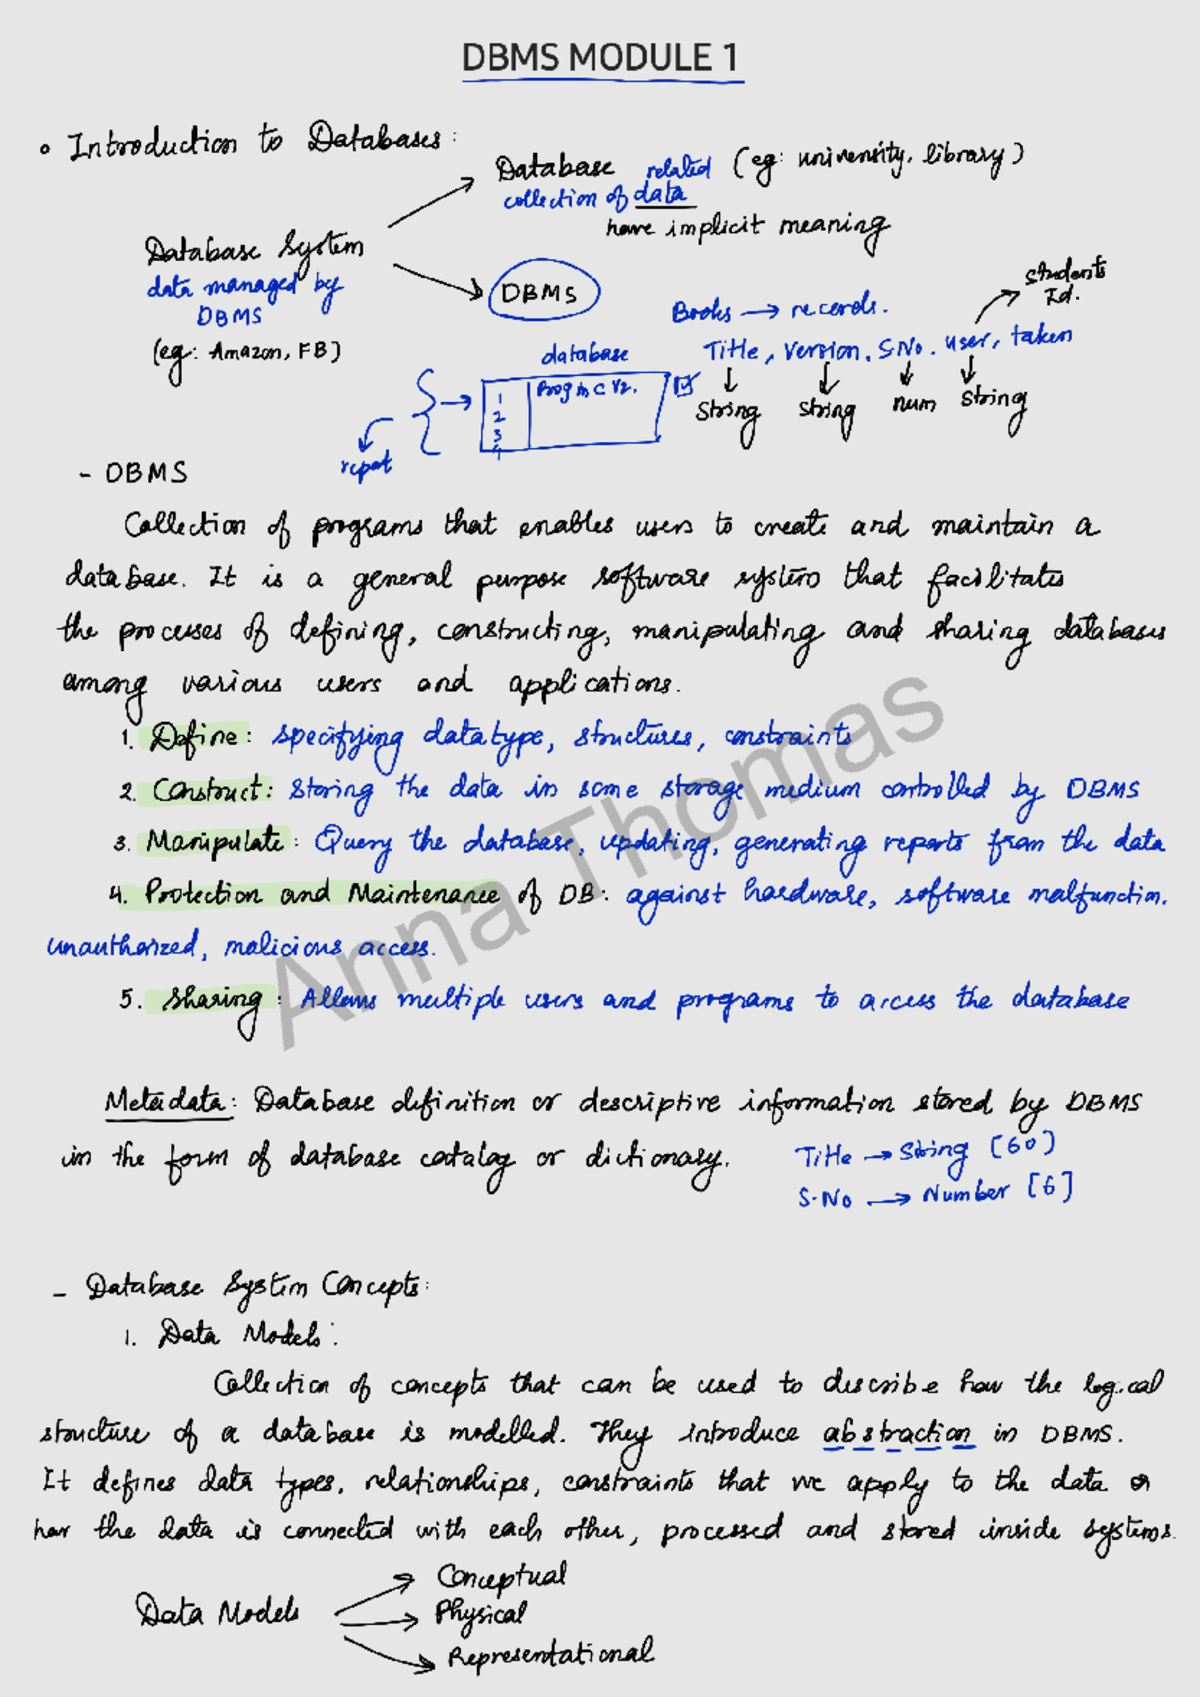 DBMS MODULE 1
• Introduction to Databases:
Database related (eg: university, library)
collection of data
have implicit meaning
Database System
data managed by
DBMS
(eg: Amazon, FB)
DBMS
Students
Id.
Books → records.
Title, Version, S.No. user, taken
String String num String
database
1 Prog in C V2.
2
3
4
repot
- DBMS
Collection of programs that enables users to create and maintain a
database. It is a general purpose software system that facilitates
the processes of defining, constructing, manipulating and sharing databases
among various users and applications.
1. Define: specifying datatype, structures, constraints
2. Construct: Storing the data in some storage medium controlled by DBMS
3. Manipulate: Query the database, updating, generating reports from the data
4. Protection and Maintenance of DB: against hardware, software malfunction.
unauthorized, malicious access.
5. Sharing: Allows multiple users and programs to access the database
Anna Thomas
Metadata: Database definition or descriptive information stored by DBMS
in the form of database catalog or dictionary.
Title → String [60]
S.No → Number [6]
- Database System Concepts:
1. Data Models:
Collection of concepts that can be used to describe how the logical
structure of a database is modelled. They introduce abstraction in DBMS.
It defines data types, relationships, constraints that we apply to the data or
how the data is connected with each other, processed and stored inside systems.
Conceptual
Data Models → Physical
Representational